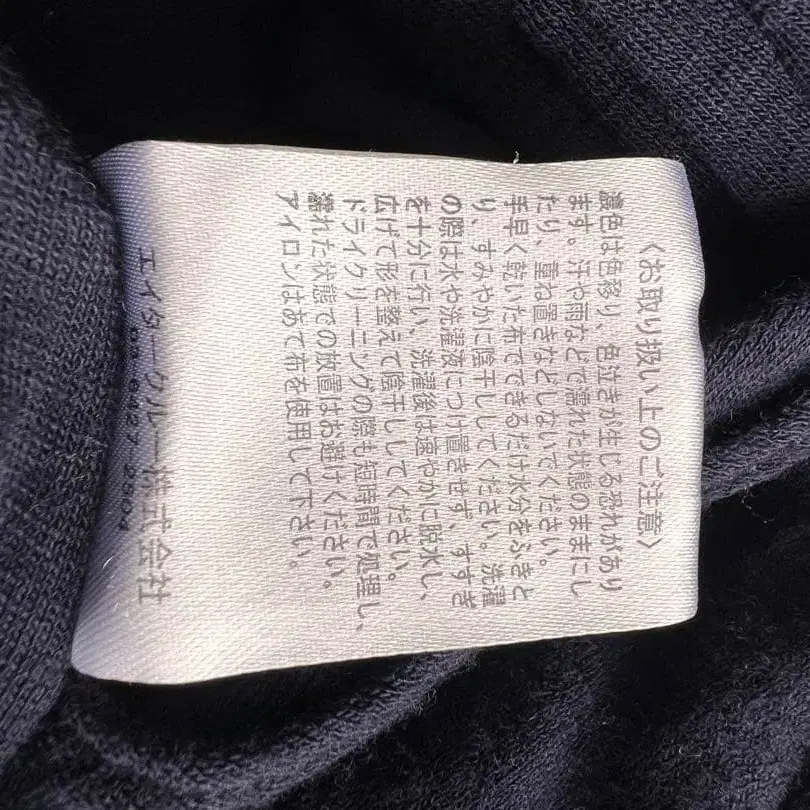 〈お取り扱い上のご注意〉
濃色は色移り、色泣きが生じる恐れがあり
ます。汗や雨などで濡れた状態のままにし
たり、重ね置きなどしないでください。
手早く乾いた布でできるだけ水分をふきと
り、すみやかに陰干ししてください。洗濯
の際は水や洗濯液につけ置きせず、すすぎ
を十分に行い、洗濯後は速やかに脱水し、
広げて形を整えて陰干ししてください。
ドライクリーニングの際も短時間で処理し、
濡れた状態での放置はお避けください。
アイロンはあて布を使用して下さい。
エイタークルー株式会社